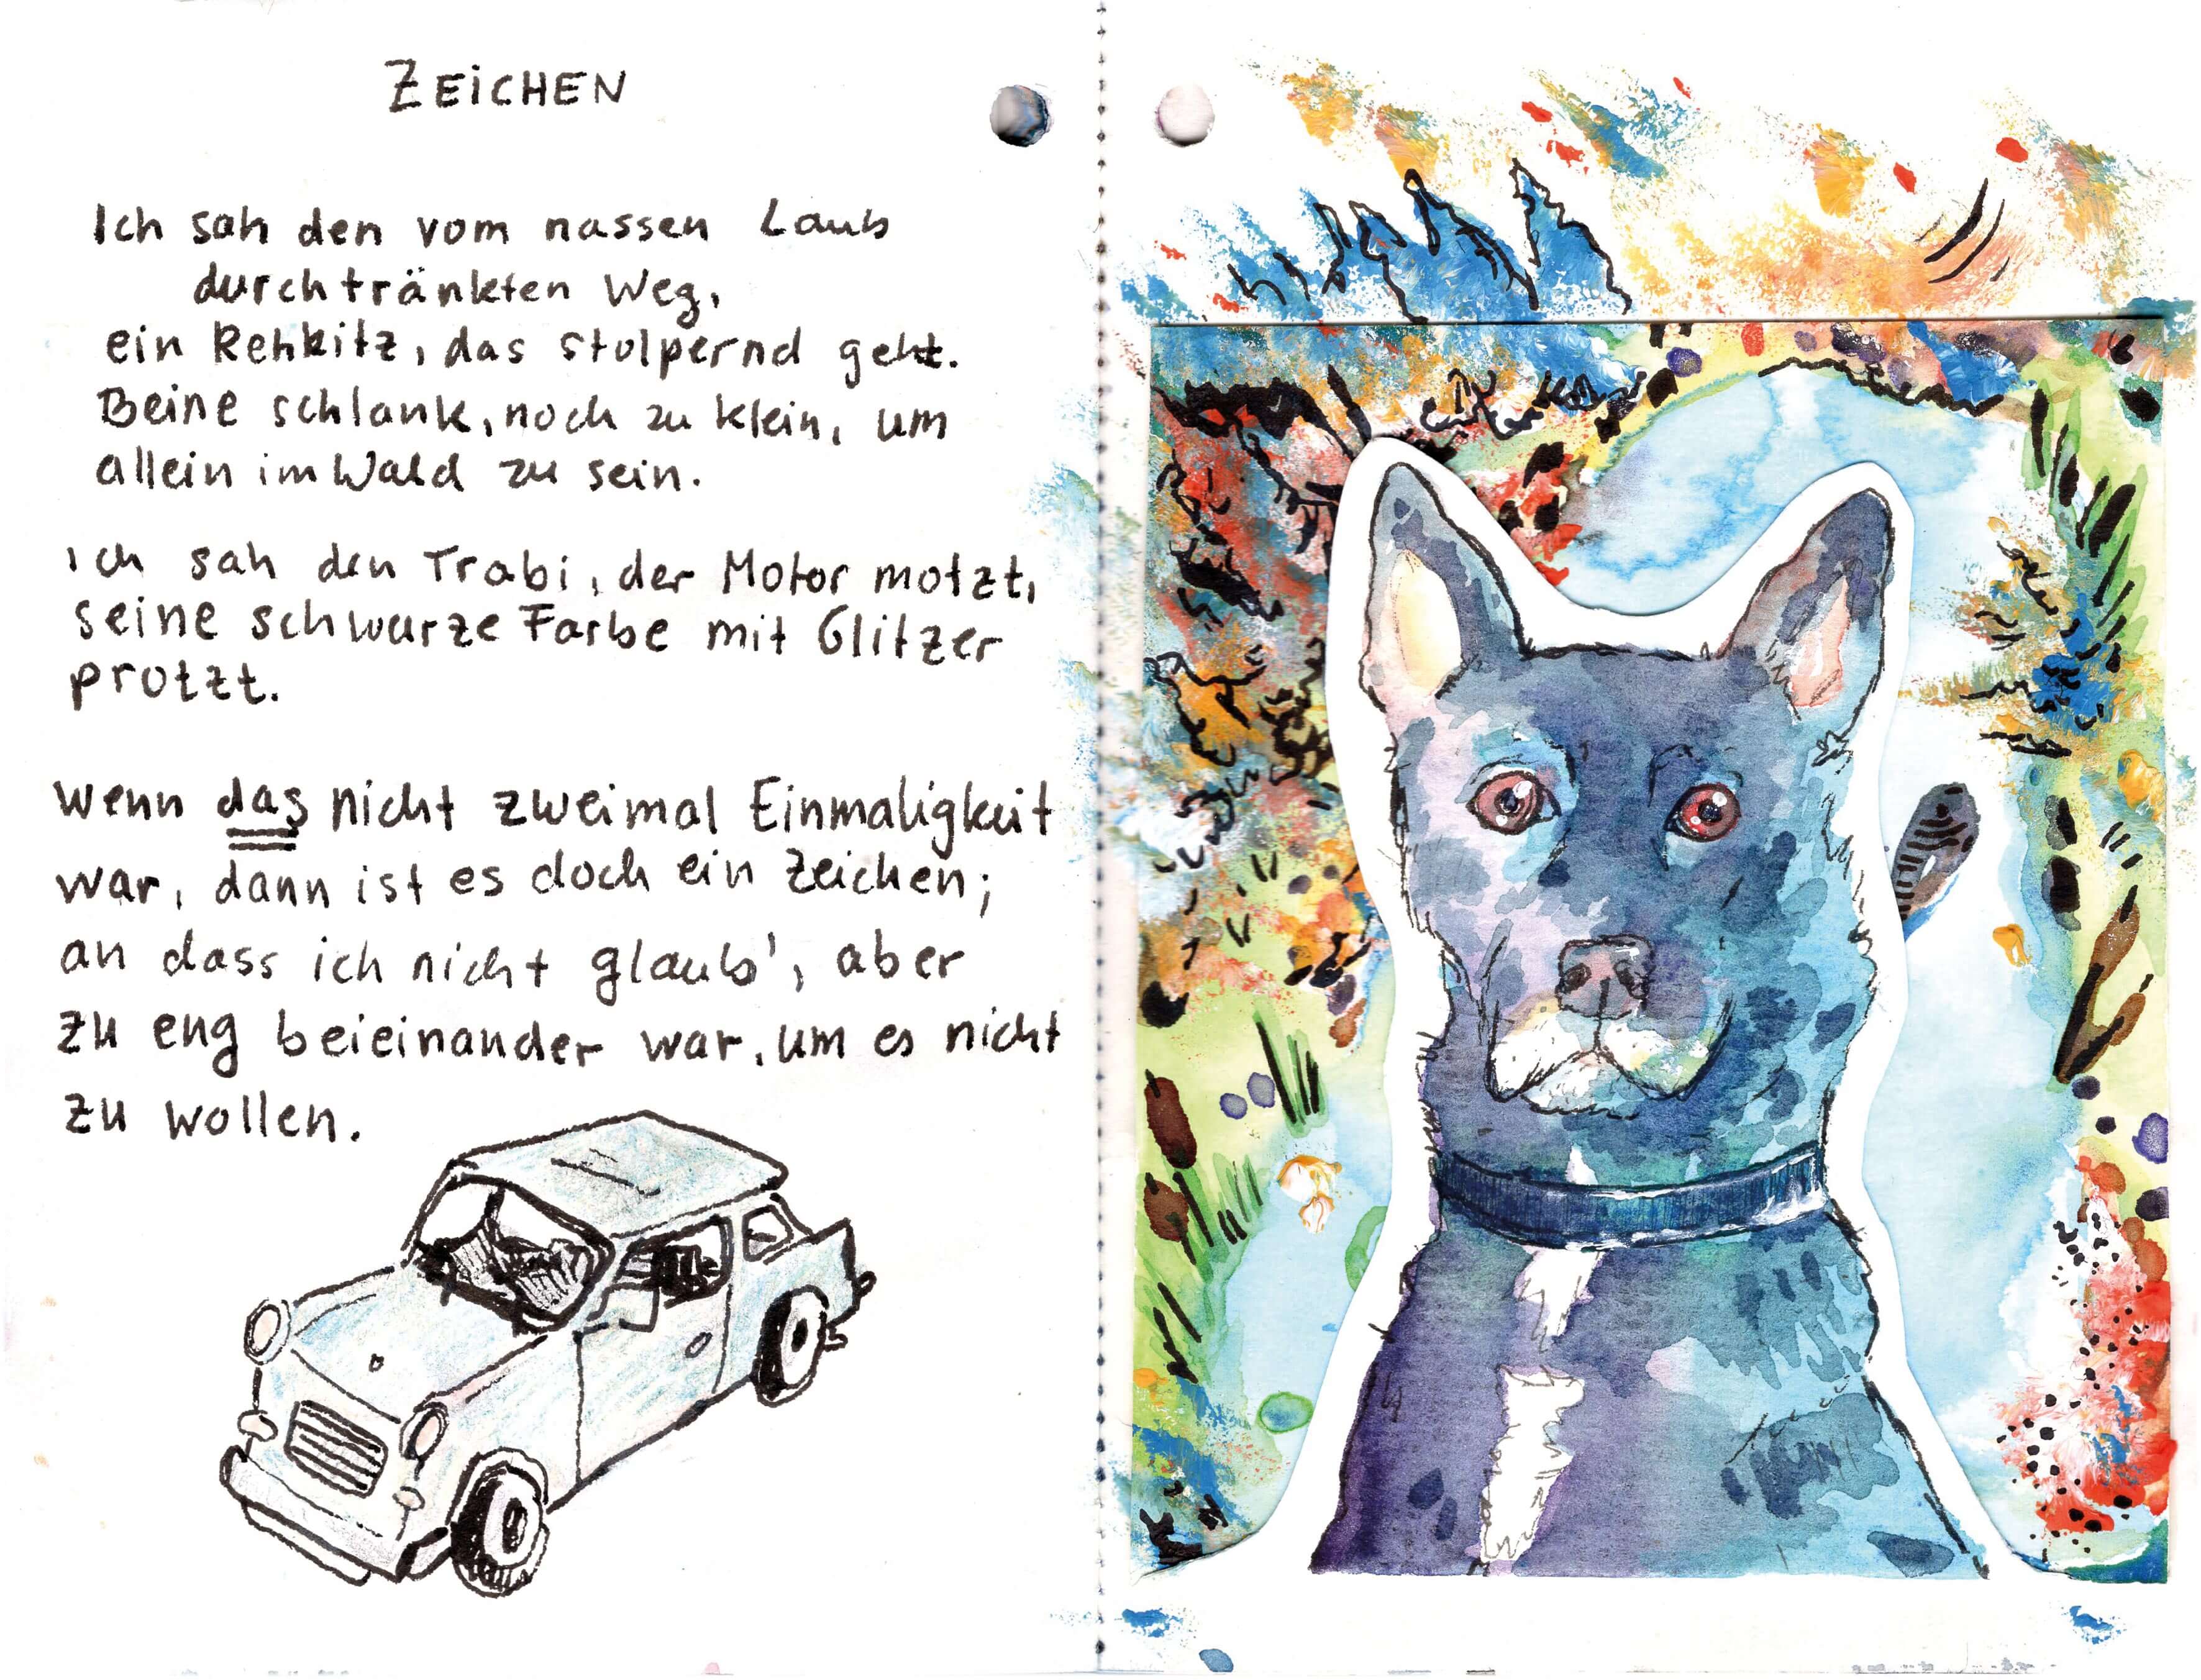 ZEiCHEN
Ich sah den vom nassen Laub
durchtränkten Weg,
ein Rehkitz, das stolpernd geht.
Beine schlank, noch zu klein, um
allein im Wald zu sein.
Ich sah den Trabi, der Motor motzt,
seine schwarze Farbe mit Glitzer
protzt.
Wenn das nicht zweimal Einmaligkeit
war, dann ist es doch ein Zeichen;
an dass ich nicht glaub', aber
zu eng beieinander war, um es nicht
zu wollen.